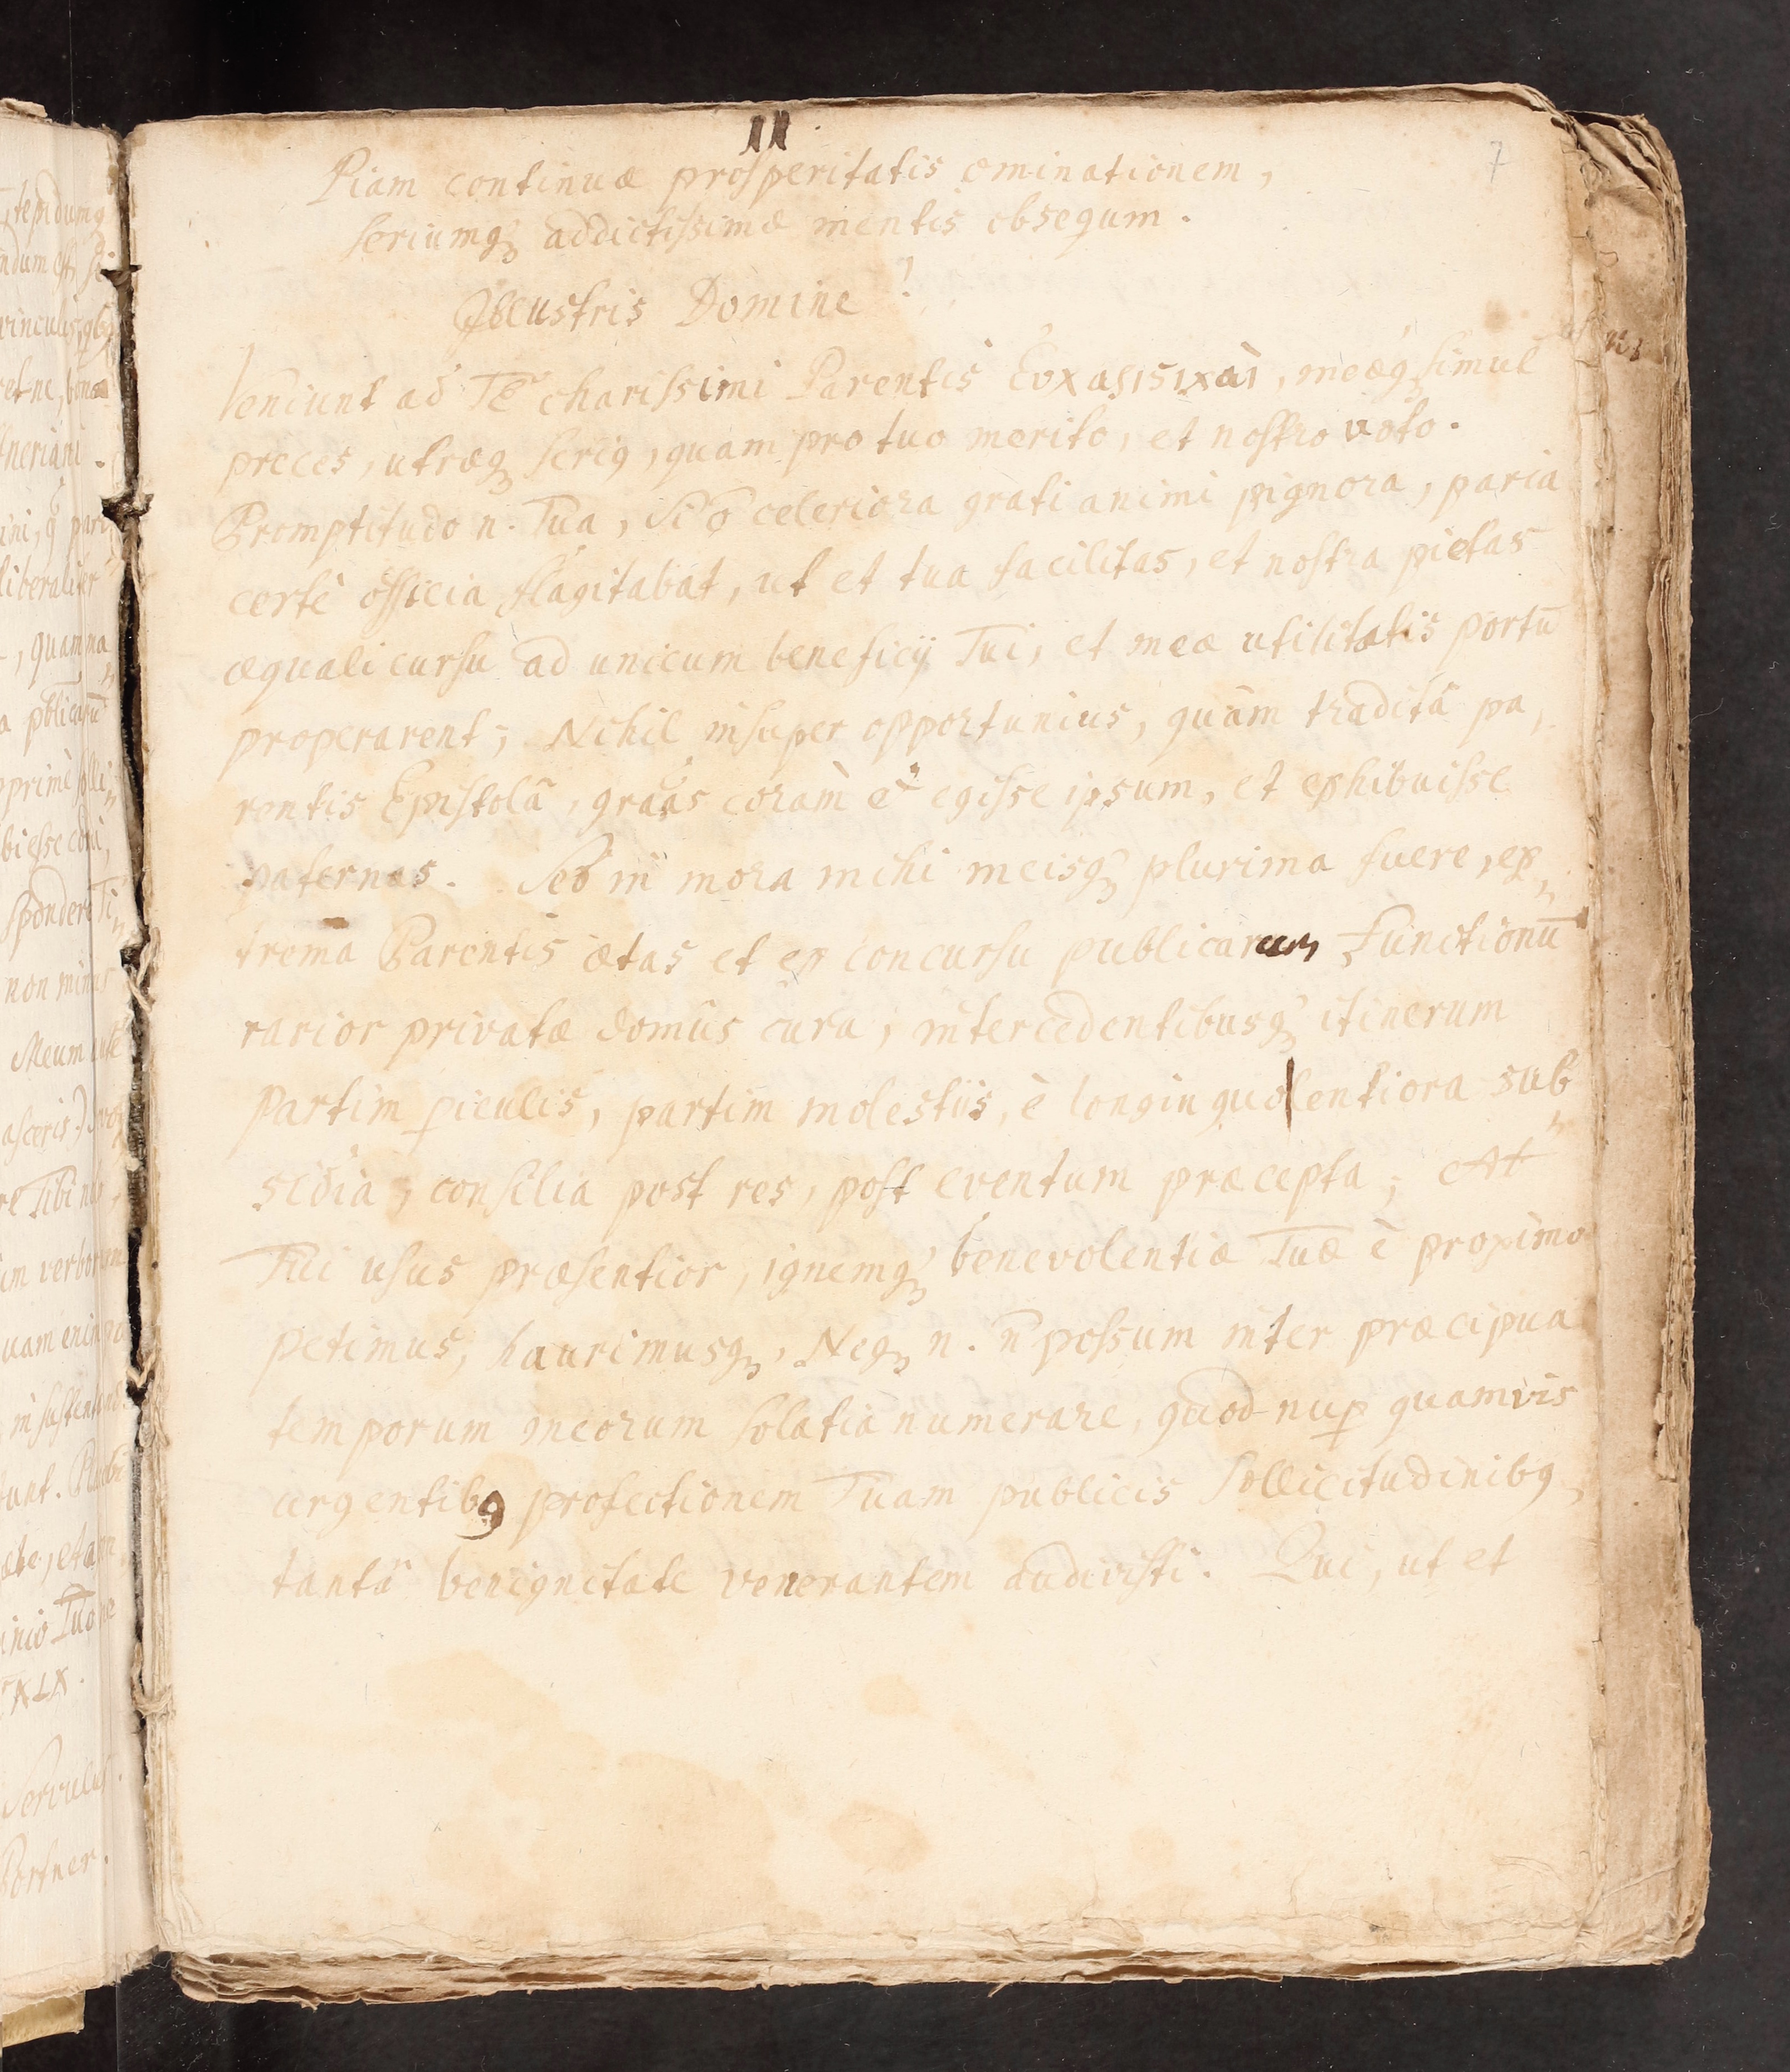 II.
7
Piam continuæ prosperitatis ominationem,
seriumq; addictissimæ mentis obsequm.
Illustris Domine!
Veniunt ad Te charissimi Parentis Εὐχαριστικαὶ, meæq; simul
preces, utræq; seriq, quam pro tuo merito, et nostro voto.
Promptitudo n. Tua, si õ celeriora grati animi pignora, paria
certè officia flagitabat, ut et tua facilitas, et nostra pietas
æquali cursu ad unicum beneficij Tui, et meæ utilitatis portū
properarent; Nihil insuper opportunius, quàm traditâ pa,
rentis Epistolâ, grãas coràm egisse ipsum, et exhibuisse
paternas. Sed in mora mihi meisq; plurima fuere, ex„
trema Parentis ætas et ex concursu publicarum Functionū
rarior privatæ domûs cura, intercedentibusq; itinerum
partim piculis, partim molestiis, è longinquo lentiora sub„
sidia, consilia post res, post eventum præcepta; At
Tui usus præsentior, ignemq; benevolentiæ Tuæ è proximo
petimus, haurimusq;, Neq; n. ñ possum inter præcipua
temporum meorum solatia numerare, quod nup quamvis
urgentibq profectionem Tuam publicis sollicitudinibq,
tantâ benignitate venerantem audivisti. Qui, ut et